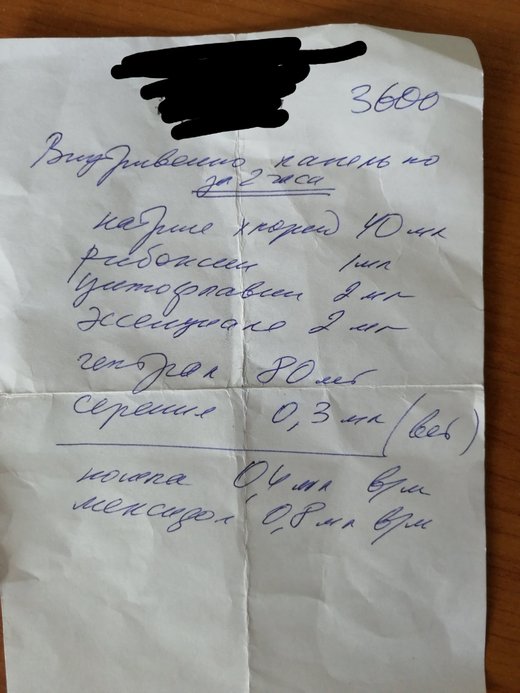 3600
Внутривенно капельно
за 2 часа
натрие хлорид 40 мл
рибоксин 1 мл
цитофлавин 2 мл
эссенциале 2 мл
гептрал 80 мг
серения 0,3 мл (вет)
ношпа 0,4 мл в/м
мексидол 0,8 мл в/м